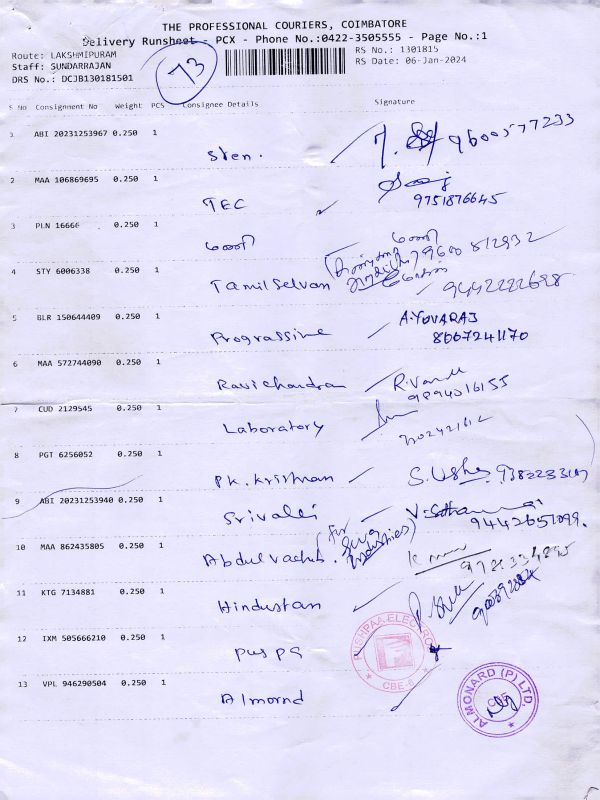 THE PROFESSIONAL COURIERS, COIMBATORE
Delivery Runsheet - PCX - Phone No.:0422-3505555 - Page No.:1
Route: LAKSHMIPURAM
Staff: SUNDARRAJAN
DRS No.: DCJB130181501
73
RS No.: 1301815
RS Date: 06-Jan-2024
S No Consignment No Weight PCS Consignee Details Signature
1 ABI 20231253967 0.250 1
Sten. 9600577233
2 MAA 106869695 0.250 1
TEC 9751876645
3 PLN 16666 0.250 1
மணி மணி
9600 812932
4 STY 6006338 0.250 1
Tamil Selvan 9442222698
5 BLR 150644409 0.250 1
Prograssine A.YUVARAJ
8667241170
6 MAA 572744090 0.250 1
Ravichandran R.
9894016155
7 CUD 2129545 0.250 1
Laboratory
8 PGT 6256052 0.250 1
PK. Krishnan S. Usha
9 ABI 20231253940 0.250 1
Srivalli
9442651099.
10 MAA 862435805 0.250 1
Abdul (For Industries)
11 KTG 7134881 0.250 1
Hindustan
12 IXM 505666210 0.250 1
puspa
CBE-6
13 VPL 946290504 0.250 1
Almornd
ALMONARD (P) LTD.
CBE